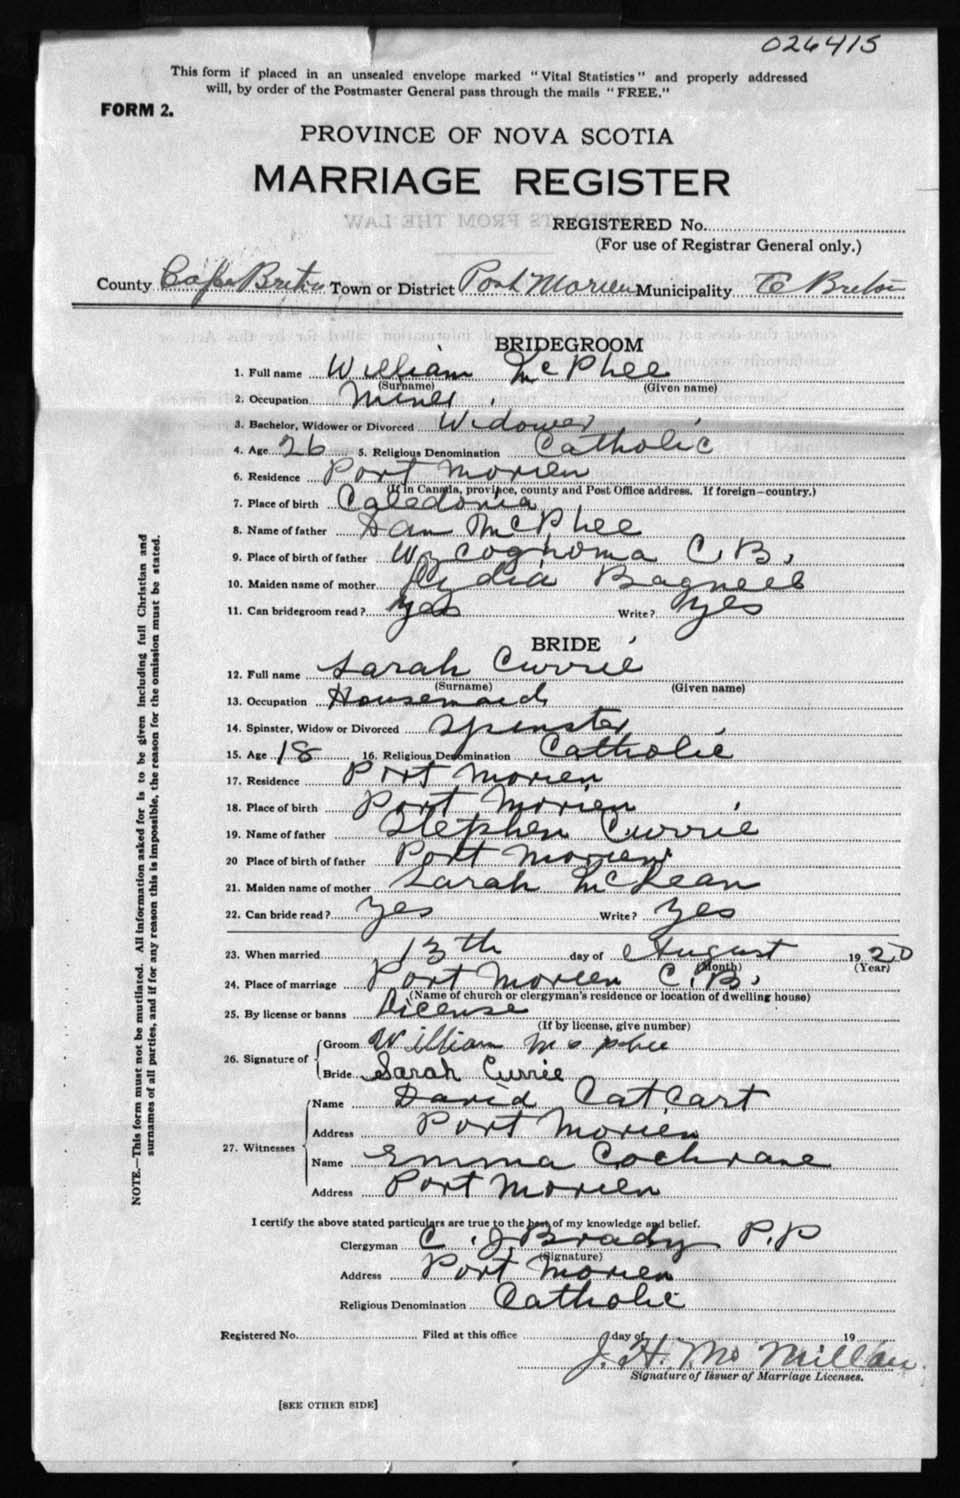 026415
This form if placed in an unsealed envelope marked "Vital Statistics" and properly addressed
will, by order of the Postmaster General pass through the mails "FREE."
FORM 2.
PROVINCE OF NOVA SCOTIA
MARRIAGE REGISTER
REGISTERED No.
(For use of Registrar General only.)
County Cape Breton Town or District Port Morien Municipality C Breton
BRIDEGROOM
1. Full name William McPhee
(Surname) (Given name)
2. Occupation Miner
3. Bachelor, Widower or Divorced Widower
4. Age 26 5. Religious Denomination Catholic
6. Residence Port Morien
(If in Canada, province, county and Post Office address. If foreign—country.)
7. Place of birth Caledonia
8. Name of father Dan McPhee
9. Place of birth of father Wycoghoma C.B.
10. Maiden name of mother Lydia Bagnell
11. Can bridegroom read? yes Write? yes
BRIDE
12. Full name Sarah Currie
(Surname) (Given name)
13. Occupation Housemaid
14. Spinster, Widow or Divorced Spinster
15. Age 18 16. Religious Denomination Catholic
17. Residence Port Morien
18. Place of birth Port Morien
19. Name of father Stephen Currie
20 Place of birth of father Port Morien
21. Maiden name of mother Sarah McLean
22. Can bride read? yes Write? yes
23. When married 13th day of August 1920
(Month) (Year)
24. Place of marriage Port Morien C.B.
(Name of church or clergyman's residence or location of dwelling house)
25. By license or banns License
(If by license, give number)
26. Signature of Groom William McPhee
Bride Sarah Currie
27. Witnesses Name David Catcart
Address Port Morien
Name Emma Cochrane
Address Port Morien
I certify the above stated particulars are true to the best of my knowledge and belief.
Clergyman C. J. Brady P.P
(Signature)
Address Port Morien
Religious Denomination Catholic
Registered No. Filed at this office day of 19
J. H. McMillan
Signature of Issuer of Marriage Licenses.
[SEE OTHER SIDE]
NOTE.—This form must not be mutilated. All information asked for is to be given including full Christian and
surnames of all parties, and if for any reason this is impossible, the reason for the omission must be stated.